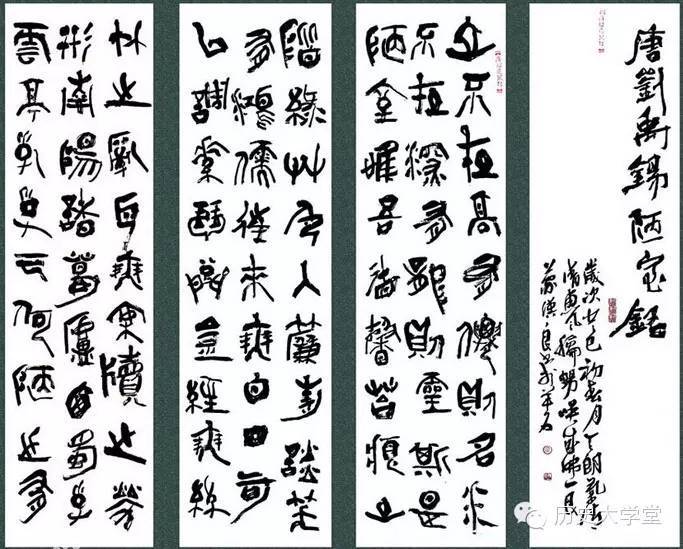 唐劉禹錫陋室銘
歲次 巳初春月天朗氣
山不在高有僊則名水
不在深有龍則靈斯是
陋室惟吾德馨苔痕上
階綠草色入簾青談笑
有鴻儒往來無白丁可
以調素琴閱金經無絲
竹之亂耳無案牘之勞
形南陽諸葛廬西蜀子
雲亭孔子云何陋之有
历史大学堂